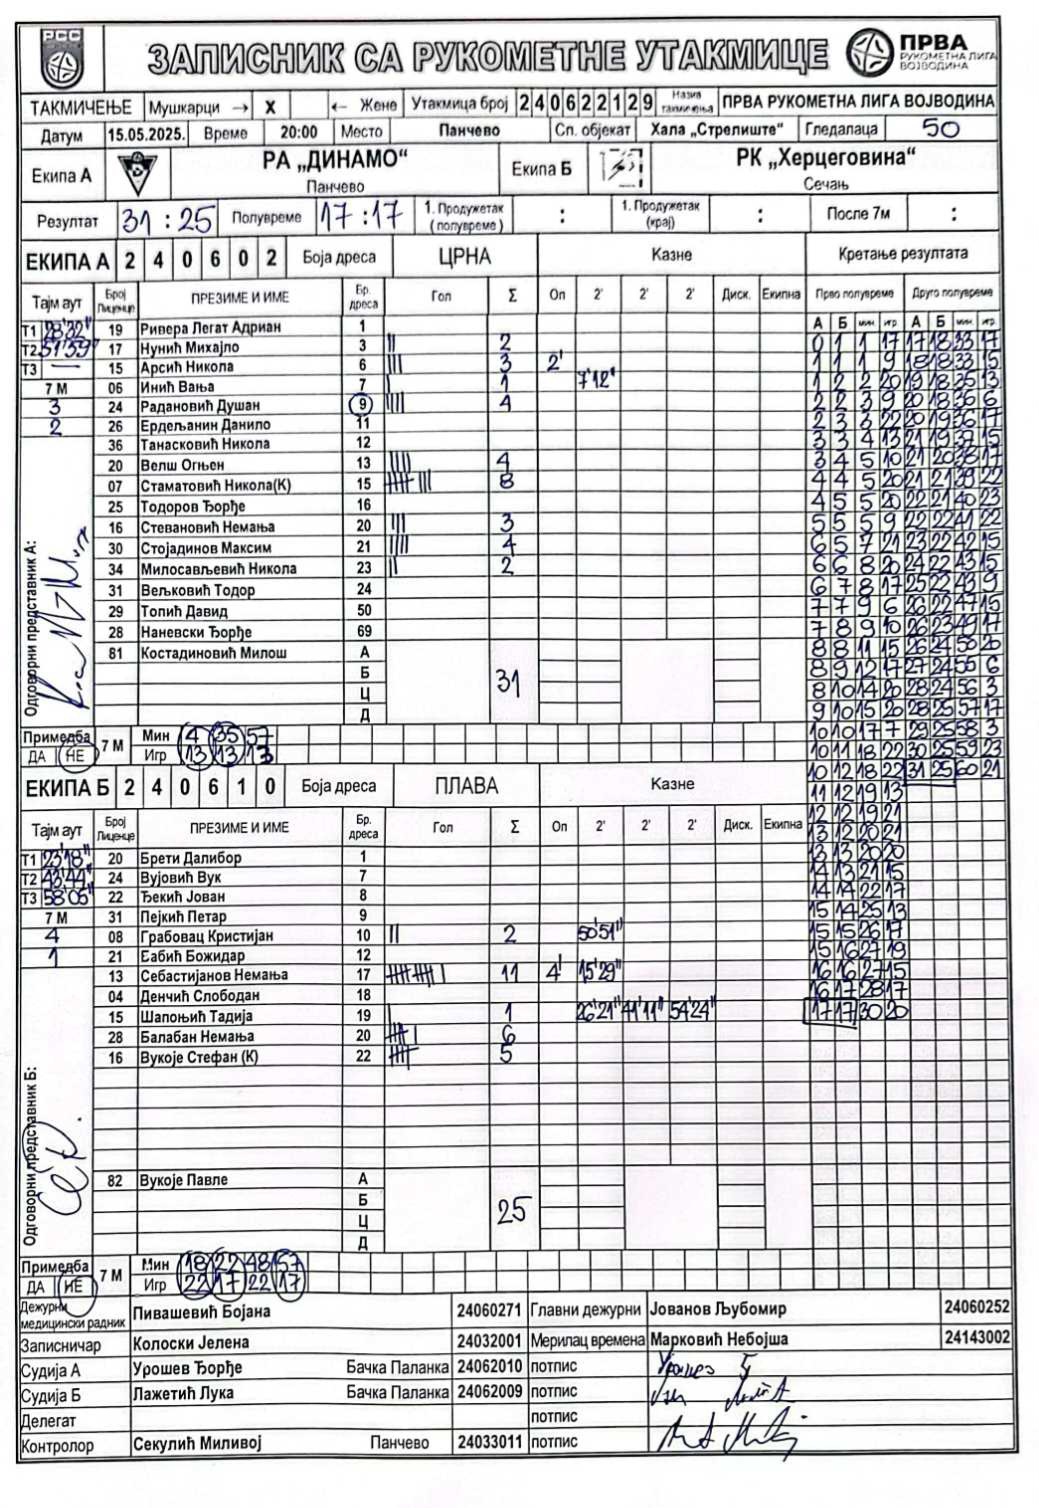 РСС
ЗАПИСНИК СА РУКОМЕТНЕ УТАКМИЦЕ
ПРВА
РУКОМЕТНА ЛИГА
ВОЈВОДИНА
ТАКМИЧЕЊЕ Мушкарци → X ← Жене Утакмица број 240622129 Назив такмичења ПРВА РУКОМЕТНА ЛИГА ВОЈВОДИНА
Датум 15.05.2025. Време 20:00 Место Панчево Сп. објекат Хала „Стрелиште“ Гледалаца 50
Екипа А РА „ДИНАМО“ Панчево Екипа Б РК „Херцеговина“ Сечањ
Резултат 31 : 25 Полувреме 17 : 17 1. Продужетак (полувреме) : 1. Продужетак (крај) : После 7м :
ЕКИПА А 2 4 0 6 0 2 Боја дреса ЦРНА Казне Кретање резултата
Тајм аут Број Лиценце ПРЕЗИМЕ И ИМЕ Бр. дреса Гол Σ Оп 2' 2' 2' Диск. Екипна Прво полувреме Друго полувреме
А Б мин. игр. А Б мин. игр.
Т1 28'32" 19 Ривера Легат Адриан 1
Т2 51'59" 17 Нунић Михајло 3 2
Т3 — 15 Арсић Никола 6 3 2'
7 М 06 Инић Вања 7 1 7'12"
3 24 Радановић Душан 9 4
2 26 Ердељанин Данило 11
36 Танасковић Никола 12
20 Велш Огњен 13 4
07 Стаматовић Никола(К) 15 8
25 Тодоров Ђорђе 16
16 Стевановић Немања 20 3
30 Стојадинов Максим 21 4
34 Милосављевић Никола 23 2
31 Вељковић Тодор 24
29 Топић Давид 50
28 Наневски Ђорђе 69
81 Костадиновић Милош А
Б
Ц
Д
31
Одговорни представник А:
Примедба ДА НЕ 7 М Мин 4 35 57
Игр 13 13 13
0 1 1 17 17 18 33 17
1 1 1 9 18 18 33 15
1 2 2 20 19 18 35 13
2 2 3 9 20 18 36 6
2 3 3 22 20 19 36 17
3 3 4 13 21 19 37 15
3 4 5 10 21 20 38 17
4 4 5 20 21 21 39 22
4 5 5 20 22 21 40 23
5 5 5 9 22 22 41 22
6 5 7 21 23 22 42 15
6 6 8 20 24 22 43 15
6 7 8 17 25 22 43 9
7 7 9 6 26 22 47 15
7 8 9 10 26 23 49 17
8 8 11 15 26 24 50 20
8 9 12 17 27 24 55 6
8 10 14 20 28 24 56 3
9 10 15 20 28 25 57 17
10 10 17 7 29 25 58 3
10 11 18 22 30 25 59 23
10 12 18 22 31 25 60 21
11 12 19 13
12 12 19 21
13 12 20 21
13 13 20 20
14 13 21 15
14 14 22 17
15 14 25 13
15 15 26 17
15 16 27 19
16 16 27 15
16 17 28 17
17 17 30 20
ЕКИПА Б 2 4 0 6 1 0 Боја дреса ПЛАВА Казне
Тајм аут Број Лиценце ПРЕЗИМЕ И ИМЕ Бр. дреса Гол Σ Оп 2' 2' 2' Диск. Екипна
Т1 23'18" 20 Брети Далибор 1
Т2 43'44" 24 Вујовић Вук 7
Т3 58'05" 22 Ђекић Јован 8
7 М 31 Пејкић Петар 9
4 08 Грабовац Кристијан 10 2 50'51"
1 21 Бабић Божидар 12
13 Себастијанов Немања 17 11 4' 15'29"
04 Денчић Слободан 18
15 Шапоњић Тадија 19 1 26'21" 41'11" 54'24"
28 Балабан Немања 20 6
16 Вукоје Стефан (К) 22 5
82 Вукоје Павле А
Б
Ц
Д
25
Одговорни представник Б:
Примедба ДА НЕ 7 М Мин 18 22 48 57
Игр 22 17 22 17
Дежурни медицински радник Пивашевић Бојана 24060271 Главни дежурни Јованов Љубомир 24060252
Записничар Колоски Јелена 24032001 Мерилац времена Марковић Небојша 24143002
Судија А Урошев Ђорђе Бачка Паланка 24062010 потпис
Судија Б Лажетић Лука Бачка Паланка 24062009 потпис
Делегат потпис
Контролор Секулић Миливој Панчево 24033011 потпис